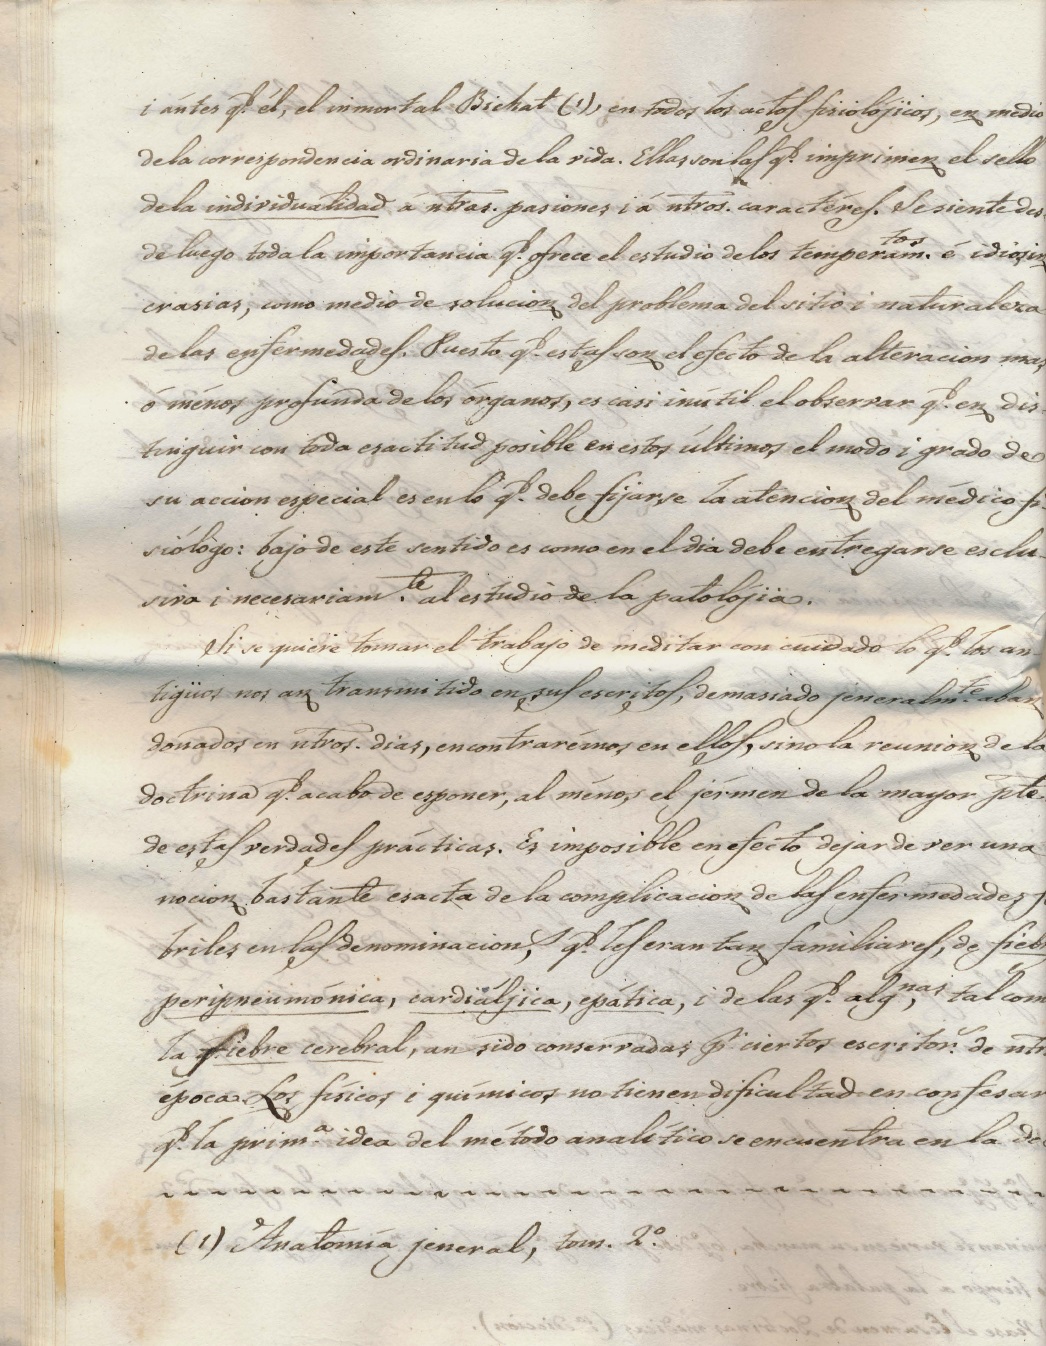 i ántes qᵉ. él, el inmortal Bichat (1), en todos los actos fisiolójicos, en medio
de la correspondencia ordinaria de la vida. Ellas son las qᵉ. imprimen el sello
de la individualidad á ntras. pasiones i á ntros. caractéres. Se siente des-
de luego toda la importancia qᵉ. ofrece el estudio de los temperam.ᵗᵒˢ é idiosin
crasias, como medio de solucion del problema del sitio i naturaleza
de las enfermedades. Puesto qᵉ. estas son el efecto de la alteracion mas
ó ménos profunda de los órganos, es casi inútil el observar qᵉ. en dis-
tinguir con toda esactitud posible en estos últimos el modo i grado de
su accion especial es en lo qᵉ. debe fijarse la atencion del médico fi-
siólogo: bajo de este sentido es como en el dia debe entregarse esclu-
siva i necesariam.ᵗᵉ al estudio de la patolójia.
Si se quiere tomar el trabajo de meditar con cuidado lo qᵉ. los an-
tigüos nos an transmitido en sus escritos, demasiado jeneralm.ᵗᵉ aban
donados en ntros. dias, encontrarémos en ellos, sino la reunion de la
doctrina qᵉ. acabo de esponer, al ménos el jérmen de la mayor pte
de estas verdades prácticas. Es imposible en efecto dejar de ver una
nocion bastante esacta de la complicacion de las enfermedades f
briles en las denominacion.ˢ qᵉ. les eran tan familiares, de fieb
peripneumónica, cardiáljica, epática, i de las qᵉ. algⁿᵃˢ, tal com
la fiebre cerebral, an sido conservadas pʳ ciertos escritorˢ. de ntr
época. Los físicos i químicos no tienen dificultad en confesar
qᵉ. la primᵃ. idea del método analítico se encuentra en la do
(1) Anatomía jeneral, tom. 2º.